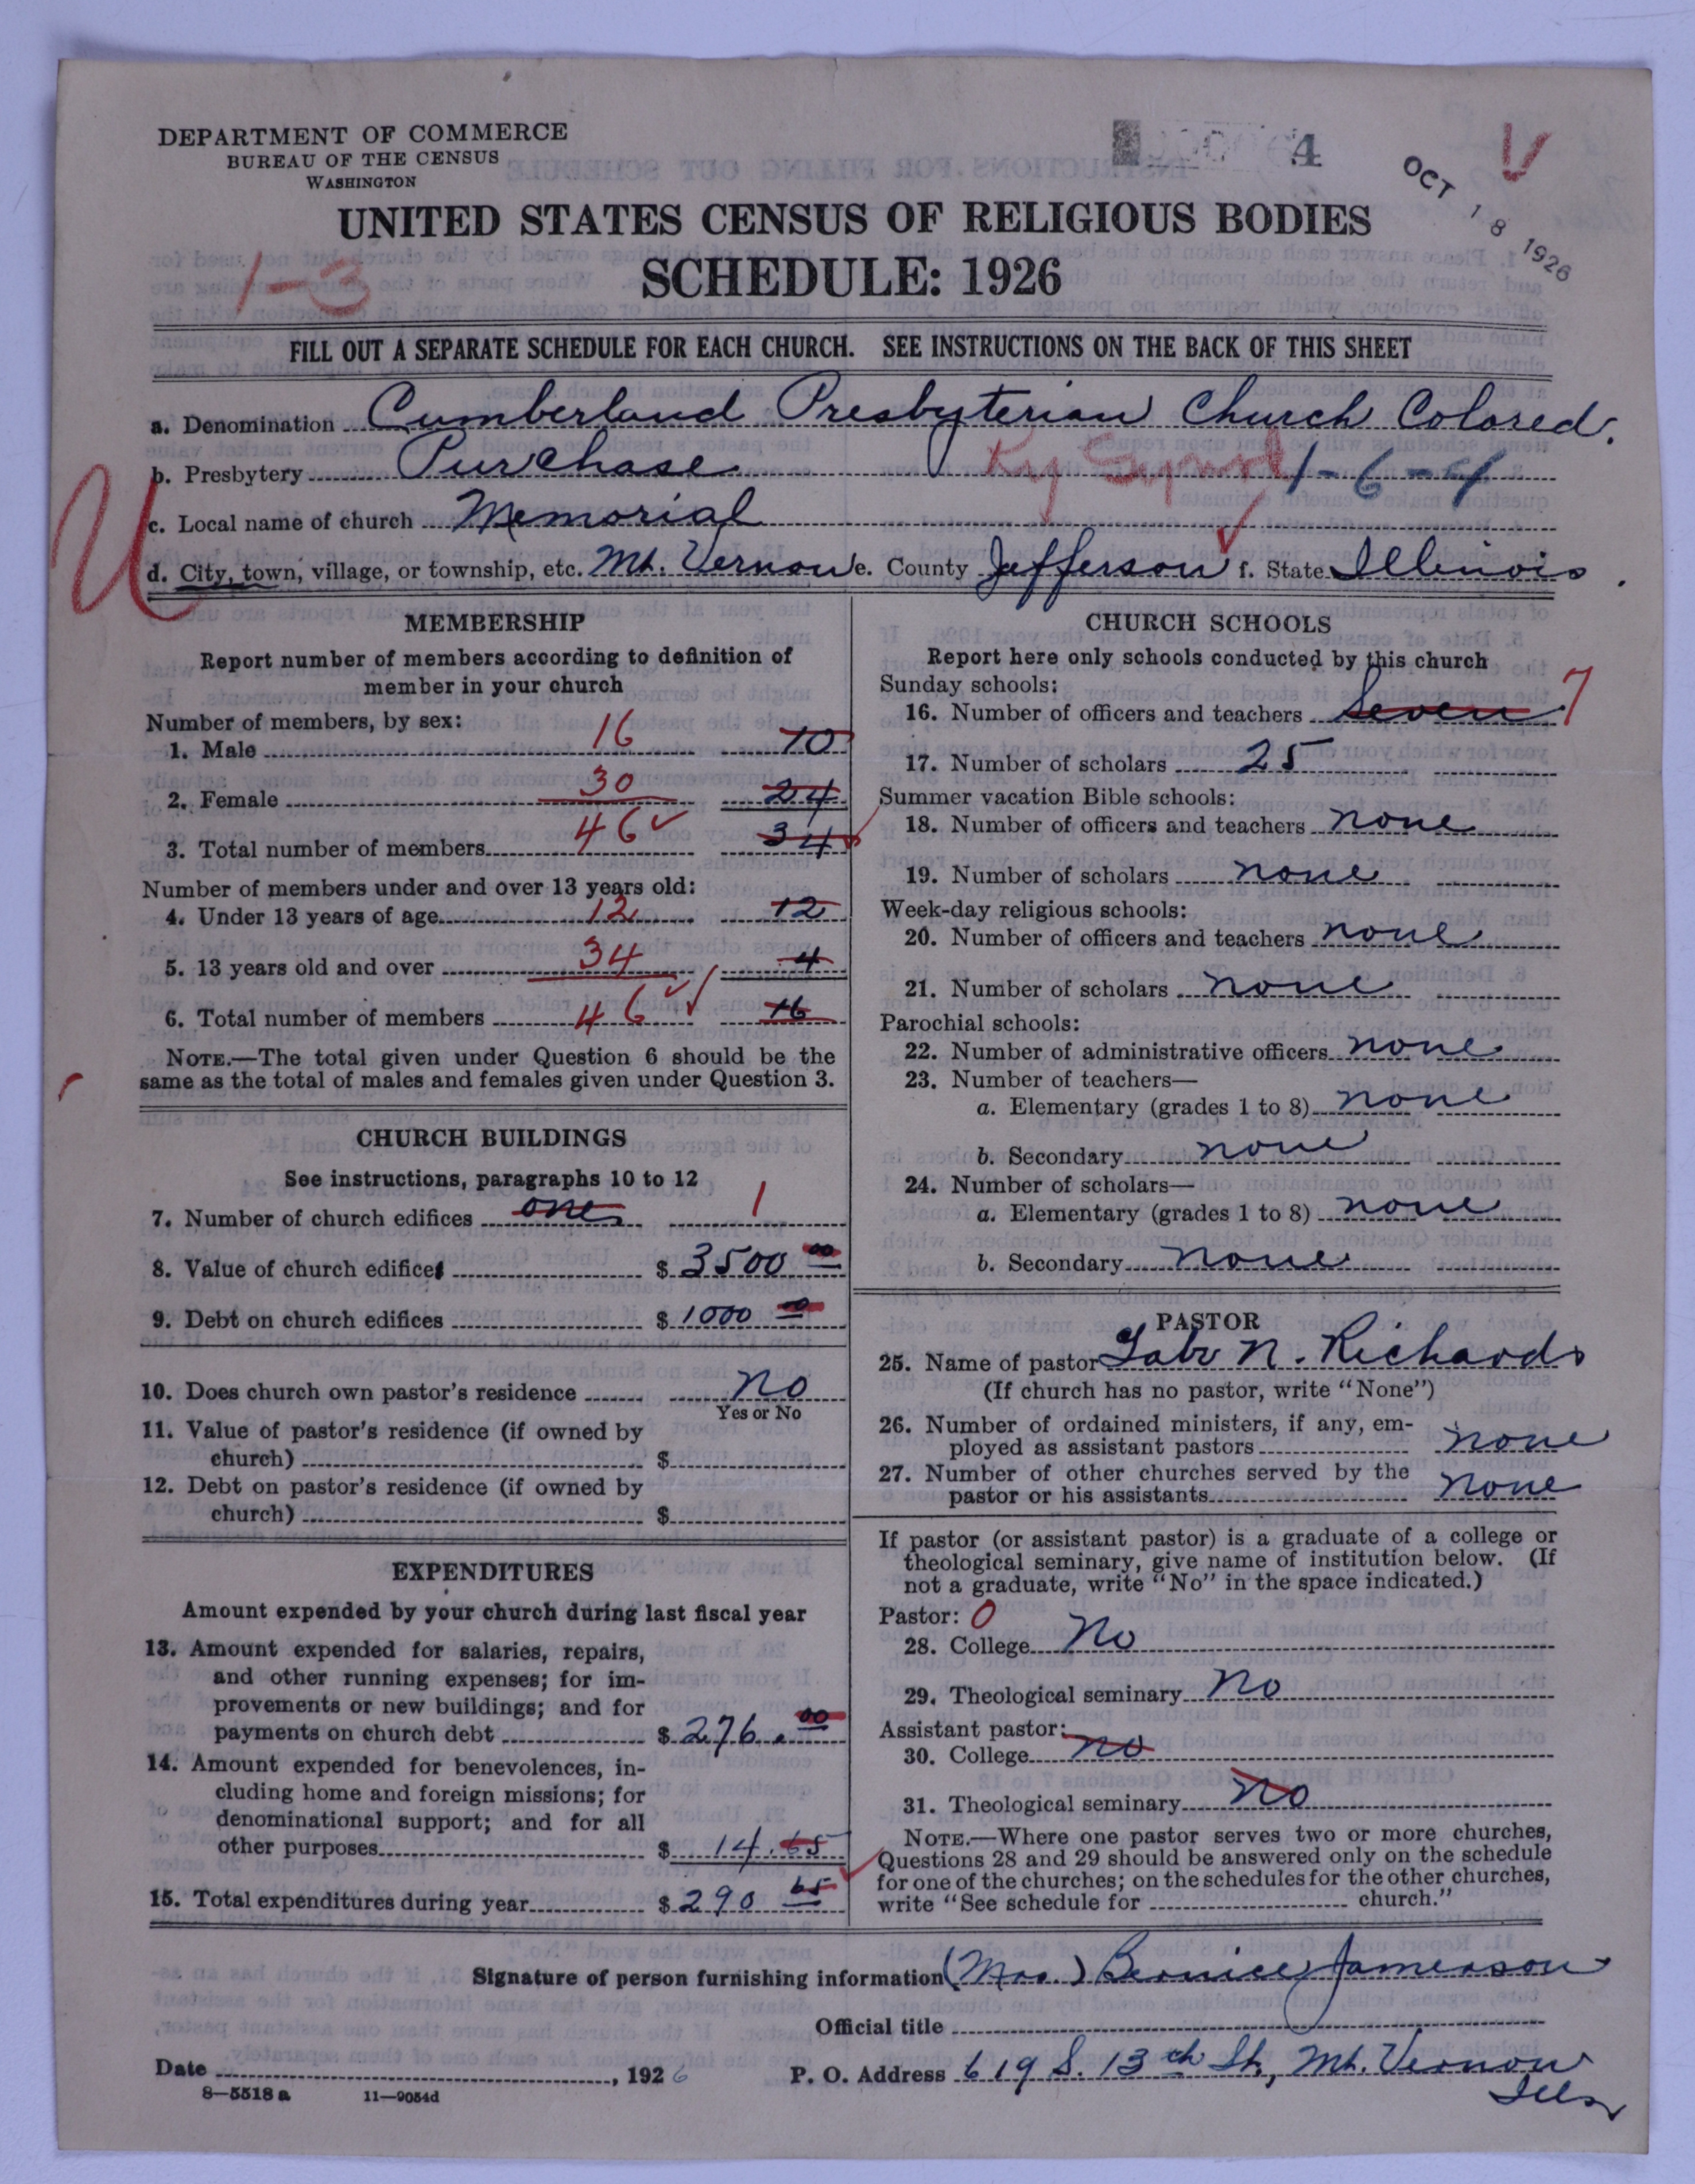 DEPARTMENT OF COMMERCE
BUREAU OF THE CENSUS
WASHINGTON
4
OCT 18 1926
V
UNITED STATES CENSUS OF RELIGIOUS BODIES
1-3
SCHEDULE: 1926
FILL OUT A SEPARATE SCHEDULE FOR EACH CHURCH. SEE INSTRUCTIONS ON THE BACK OF THIS SHEET
a. Denomination Cumberland Presbyterian Church Colored.
b. Presbytery Purchase Ky Synod 1-6-4
U
c. Local name of church Memorial
d. City, town, village, or township, etc. Mt. Vernon e. County Jefferson f. State Illinois.
MEMBERSHIP
Report number of members according to definition of
member in your church
Number of members, by sex:
1. Male 16 10
2. Female 30 24
3. Total number of members 46 34
Number of members under and over 13 years old:
4. Under 13 years of age 12 12
5. 13 years old and over 34 4
6. Total number of members 46 16
NOTE.—The total given under Question 6 should be the
same as the total of males and females given under Question 3.
CHURCH BUILDINGS
See instructions, paragraphs 10 to 12
7. Number of church edifices one 1
8. Value of church edifices $ 3500 00
9. Debt on church edifices $ 1000 00
10. Does church own pastor's residence No
Yes or No
11. Value of pastor's residence (if owned by
church) $
12. Debt on pastor's residence (if owned by
church) $
EXPENDITURES
Amount expended by your church during last fiscal year
13. Amount expended for salaries, repairs,
and other running expenses; for im-
provements or new buildings; and for
payments on church debt $ 276.00
14. Amount expended for benevolences, in-
cluding home and foreign missions; for
denominational support; and for all
other purposes $ 14.65
15. Total expenditures during year $ 290 65
CHURCH SCHOOLS
Report here only schools conducted by this church
Sunday schools:
16. Number of officers and teachers Seven 7
17. Number of scholars 25
Summer vacation Bible schools:
18. Number of officers and teachers none
19. Number of scholars none
Week-day religious schools:
20. Number of officers and teachers none
21. Number of scholars none
Parochial schools:
22. Number of administrative officers none
23. Number of teachers—
a. Elementary (grades 1 to 8) none
b. Secondary none
24. Number of scholars—
a. Elementary (grades 1 to 8) none
b. Secondary none
PASTOR
25. Name of pastor N. Richards
(If church has no pastor, write "None")
26. Number of ordained ministers, if any, em-
ployed as assistant pastors none
27. Number of other churches served by the
pastor or his assistants none
If pastor (or assistant pastor) is a graduate of a college or
theological seminary, give name of institution below. (If
not a graduate, write "No" in the space indicated.)
Pastor: 0
28. College No
29. Theological seminary No
Assistant pastor:
30. College no
31. Theological seminary No
NOTE.—Where one pastor serves two or more churches,
Questions 28 and 29 should be answered only on the schedule
for one of the churches; on the schedules for the other churches,
write "See schedule for church."
Signature of person furnishing information (Mrs.) Bernice Jamerson
Official title
Date , 1926 P. O. Address 619 S. 13th St, Mt. Vernon
Ills
8—5518 a 11—9054d